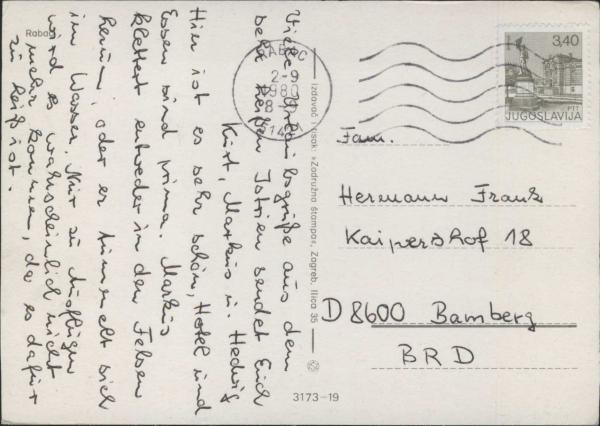 Rabac
Viele Urlaubsgrüße aus dem
sehr heißen Istrien sendet Euch
Kurt, Markus u. Hedwig
Hier ist es sehr schön, Hotel und
Essen sind prima. Markus
klettert entweder in den Felsen
herum, oder er tummelt sich
im Wasser. Nur zu Ausflügen
wird es wahrscheinlich nicht
mehr kommen, da es dafür
zu heiß ist.
Izdavač i tisak: »Zadružna štampa«, Zagreb, Ilica 35
3173-19
RABAC
2-9
1980
18
514
3,40
PTT
JUGOSLAVIJA
Fam.
Hermann Frank
Kaipershof 18
D 8600 Bamberg
BRD